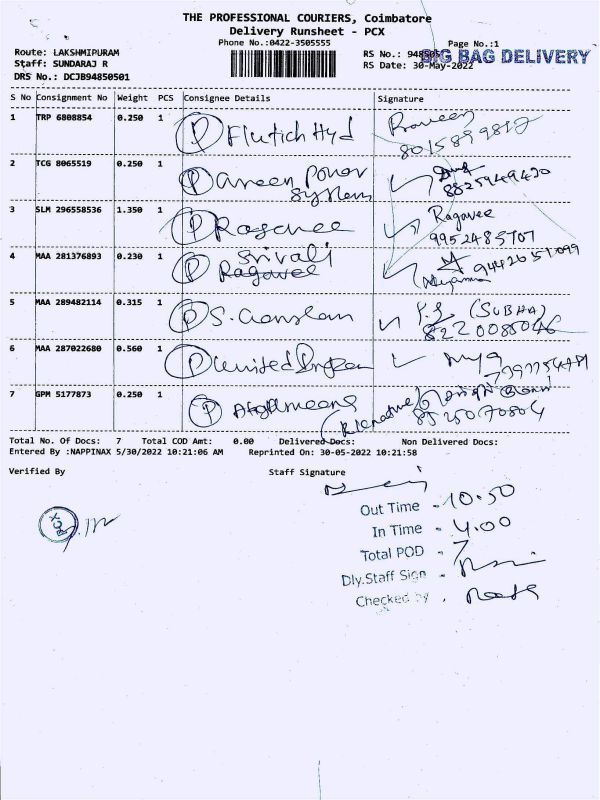 THE PROFESSIONAL COURIERS, Coimbatore
Delivery Runsheet - PCX
Phone No.:0422-3505555
Page No.:1
Route: LAKSHMIPURAM
RS No.: 948505
BIG BAG DELIVERY
Staff: SUNDARAJ R
RS Date: 30-May-2022
DRS No.: DCJB94850501
S No Consignment No Weight PCS Consignee Details Signature
1 TRP 6808854 0.250 1 P Flutich Hyd Praveen
8015899812
2 TCG 8065519 0.250 1 P Power
System 8825949420
3 SLM 296558536 1.350 1 P Ragavee Ragavee
9952485707
4 MAA 281376893 0.230 1 P Srivali
Ragavee 9442657099
5 MAA 289482114 0.315 1 P S. (SUBHA)
8220085046
6 MAA 287022680 0.560 1 P United
7 GPM 5177873 0.250 1 P
8525070804
Total No. Of Docs: 7 Total COD Amt: 0.00 Delivered Docs: Non Delivered Docs:
Entered By :NAPPINAX 5/30/2022 10:21:06 AM Reprinted On: 30-05-2022 10:21:58
Verified By Staff Signature
Out Time - 10.50
In Time - 4.00
Total POD - 7
Dly.Staff Sign -
Checked by .